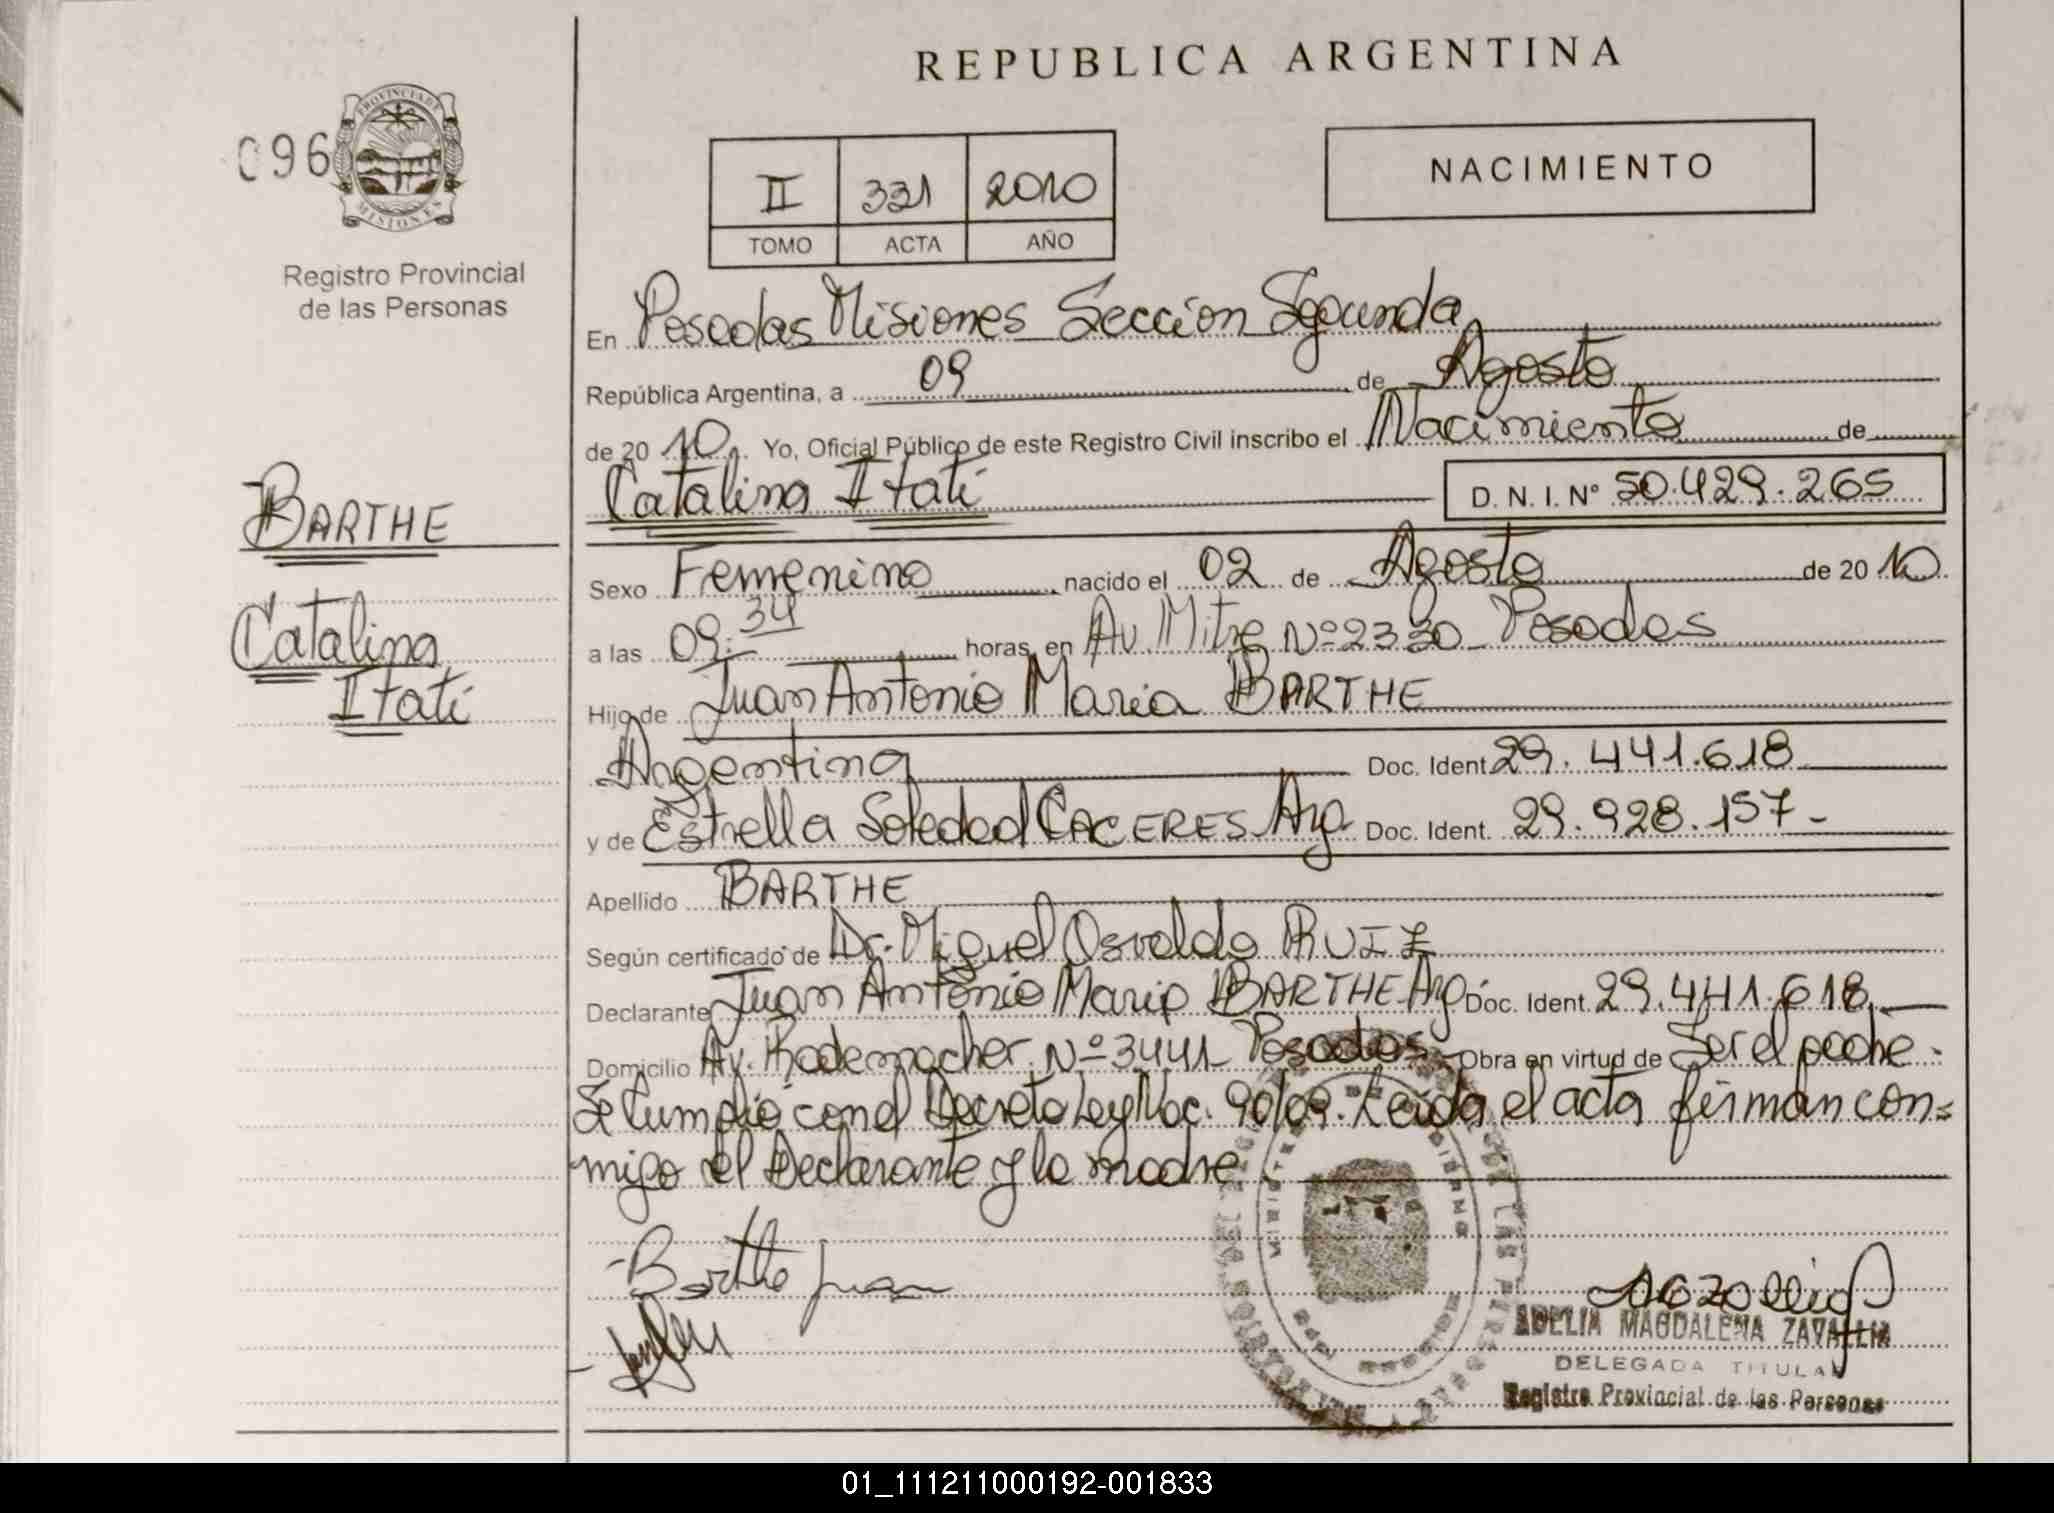 REPUBLICA ARGENTINA
096
PROVINCIA DE
MISIONES
Registro Provincial
de las Personas
II 331 2010
TOMO ACTA AÑO
NACIMIENTO
En Posadas Misiones Sección Sgounda
República Argentina, a 09 de Agosto
de 20 10 Yo, Oficial Público de este Registro Civil inscribo el Nacimiento de
Catalina Itatí D. N. I. Nº 50.429.265
BARTHE
Catalina
Itatí
Sexo Femenino nacido el 02 de Agosto de 20 10
a las 09:34 horas, en Av. Mitre Nº 2330 Posadas
Hijo de Juan Antonio Maria BARTHE
Argentina Doc. Ident 29.441.618
y de Estrella Soledad CACERES Arg. Doc. Ident. 29.928.157-
Apellido BARTHE
Según certificado de Dr. Miguel Osvaldo RUIZ
Declarante Juan Antonio Maria BARTHE Arg Doc. Ident. 29.441.618
Domicilio Av. Rademacher Nº 3441 Posadas Obra en virtud de Ser el padre.
Se Cumplió con el Decreto Ley Nac. 90/09. Leída el acta firman con=
migo el Declarante y la madre
Barthe Juan
ADELIA MAGDALENA ZAVALLIA
DELEGADA TITULAR
Registro Provincial de las Personas
01_111211000192-001833